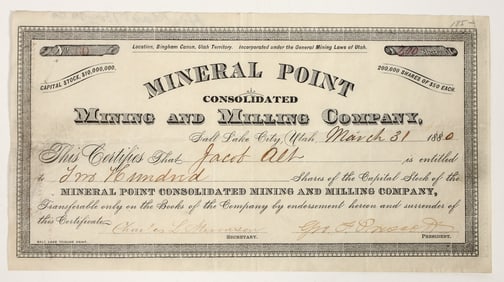 185-
Location, Bingham Canon, Utah Territory. Incorporated under the General Mining Laws of Utah.
CAPITAL STOCK, $10,000,000.
200,000 SHARES OF $50 EACH.
MINERAL POINT
CONSOLIDATED
MINING AND MILLING COMPANY,
Salt Lake City, Utah, March 31 1880
This Certifies That Jacob Alt is entitled
to Two Hundred Shares of the Capital Stock of the
MINERAL POINT CONSOLIDATED MINING AND MILLING COMPANY,
Transferable only on the Books of the Company by endorsement hereon and surrender of
this Certificate.
SECRETARY.
PRESIDENT.
SALT LAKE TRIBUNE PRINT.